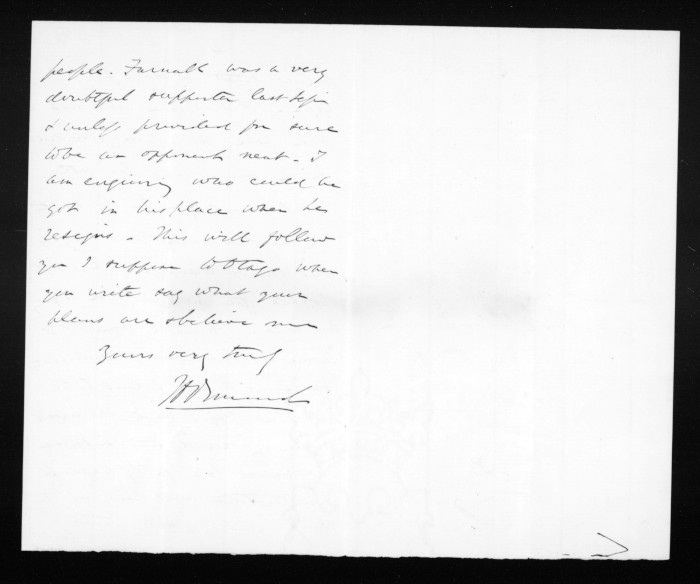 people. Farnall was a very
doubtful supporter last sessn
& unless provided for sure
to be an opponent next. I
am enquiring who could be
got in his place when he
resigns. This will follow
you I suppose to Otago when
you write say what your
plans are & believe me
Yours very truly